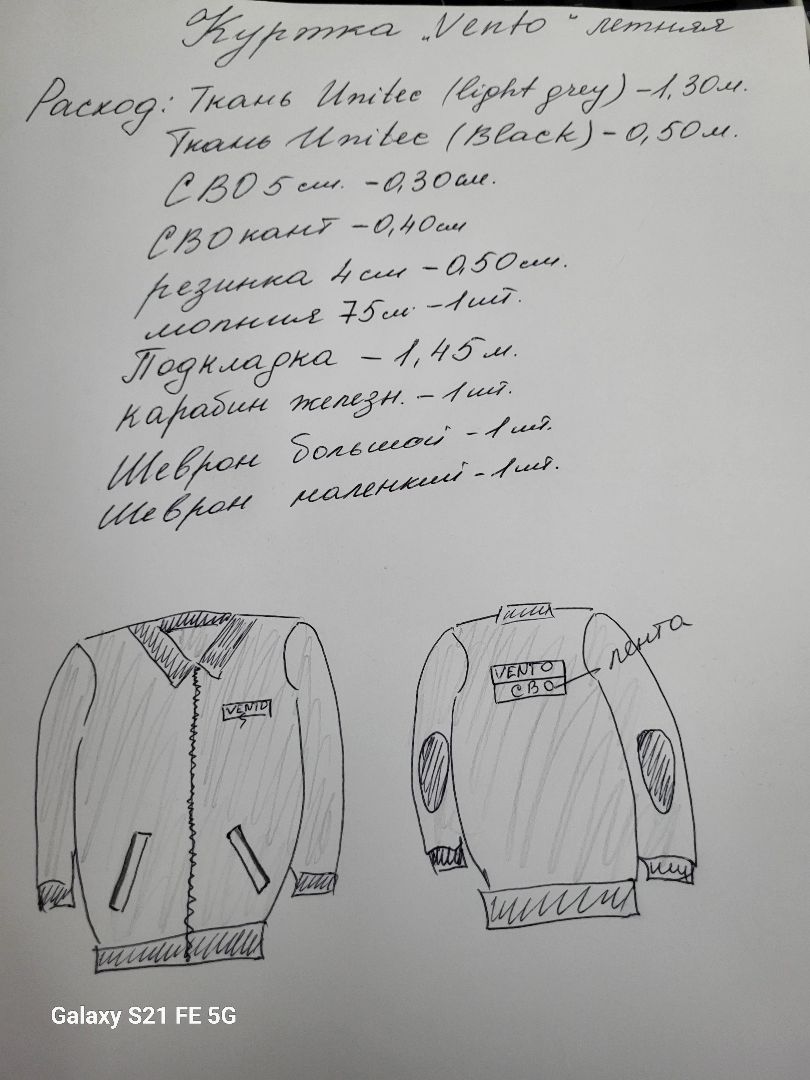 Куртка „Vento" летняя
Расход: Ткань Unitec (light grey) - 1,30м.
Ткань Unitec (Black) - 0,50м.
СВО 5 см. - 0,30см.
СВО кант - 0,40см
резинка 4см - 0,50см.
молния 75м - 1шт.
Подкладка - 1,45м.
карабин железн. - 1шт.
Шеврон большой - 1шт.
Шеврон маленкий - 1шт.
VENTO
VENTO
СВО
лента
Galaxy S21 FE 5G